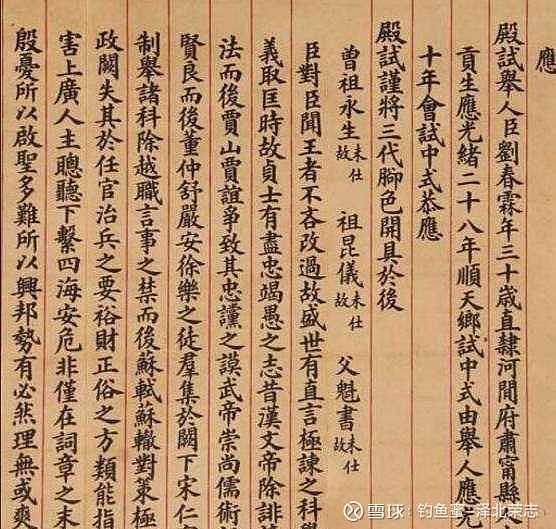 應
殿試舉人臣劉春霖年三十歲直隸河間府肅甯縣
貢生應光緒二十八年順天鄉試中式由舉人應
十年會試中式恭應
殿試謹將三代腳色開具於後
曾祖永生未仕故 祖昆儀未仕故 父魁書未仕故
臣對臣聞王者不吝改過故盛世有直言極諫之科
義取匡時故貞士有盡忠竭愚之志昔漢文帝除誹
法而後賈山賈誼爭致其忠讜之謨武帝崇尚儒術
賢良而後董仲舒嚴安徐樂之徒羣集於闕下宋仁
制舉諸科除越職言事之禁而後蘇軾蘇轍對策極
政闕失其於任官治兵之要裕財正俗之方類能指
害上廣人主聰聽下繫四海安危非僅在詞章之末
殷憂所以啟聖多難所以興邦勢有必然理無或爽
雪球:钓鱼蜜-泽北荣志